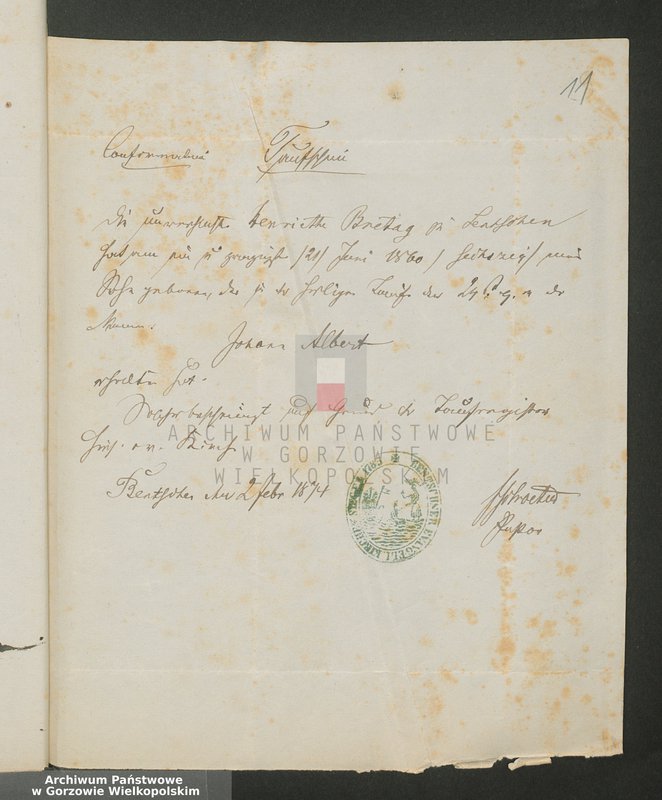 11
Taufschein
Die unverehel. Henriette Bretag zu Bentschen
hat am ein u zwanzigst /21/ Juni 1860 / sechszig / einen
Sohn geboren, der in der heiligen Taufe den 24 d. die
Namen:
Johann Albert
erhalten hat.
Solches bescheinigt auf Grund des Taufregisters
hies. ev. Kirche
Bentschen den 2 Febr 1874
Pastor
BENTSCHNER EVANGELI KIRCHEN
ARCHIWUM PAŃSTWOWE
W GORZOWIE
WIELKOPOLSKIM
Archiwum Państwowe
w Gorzowie Wielkopolskim